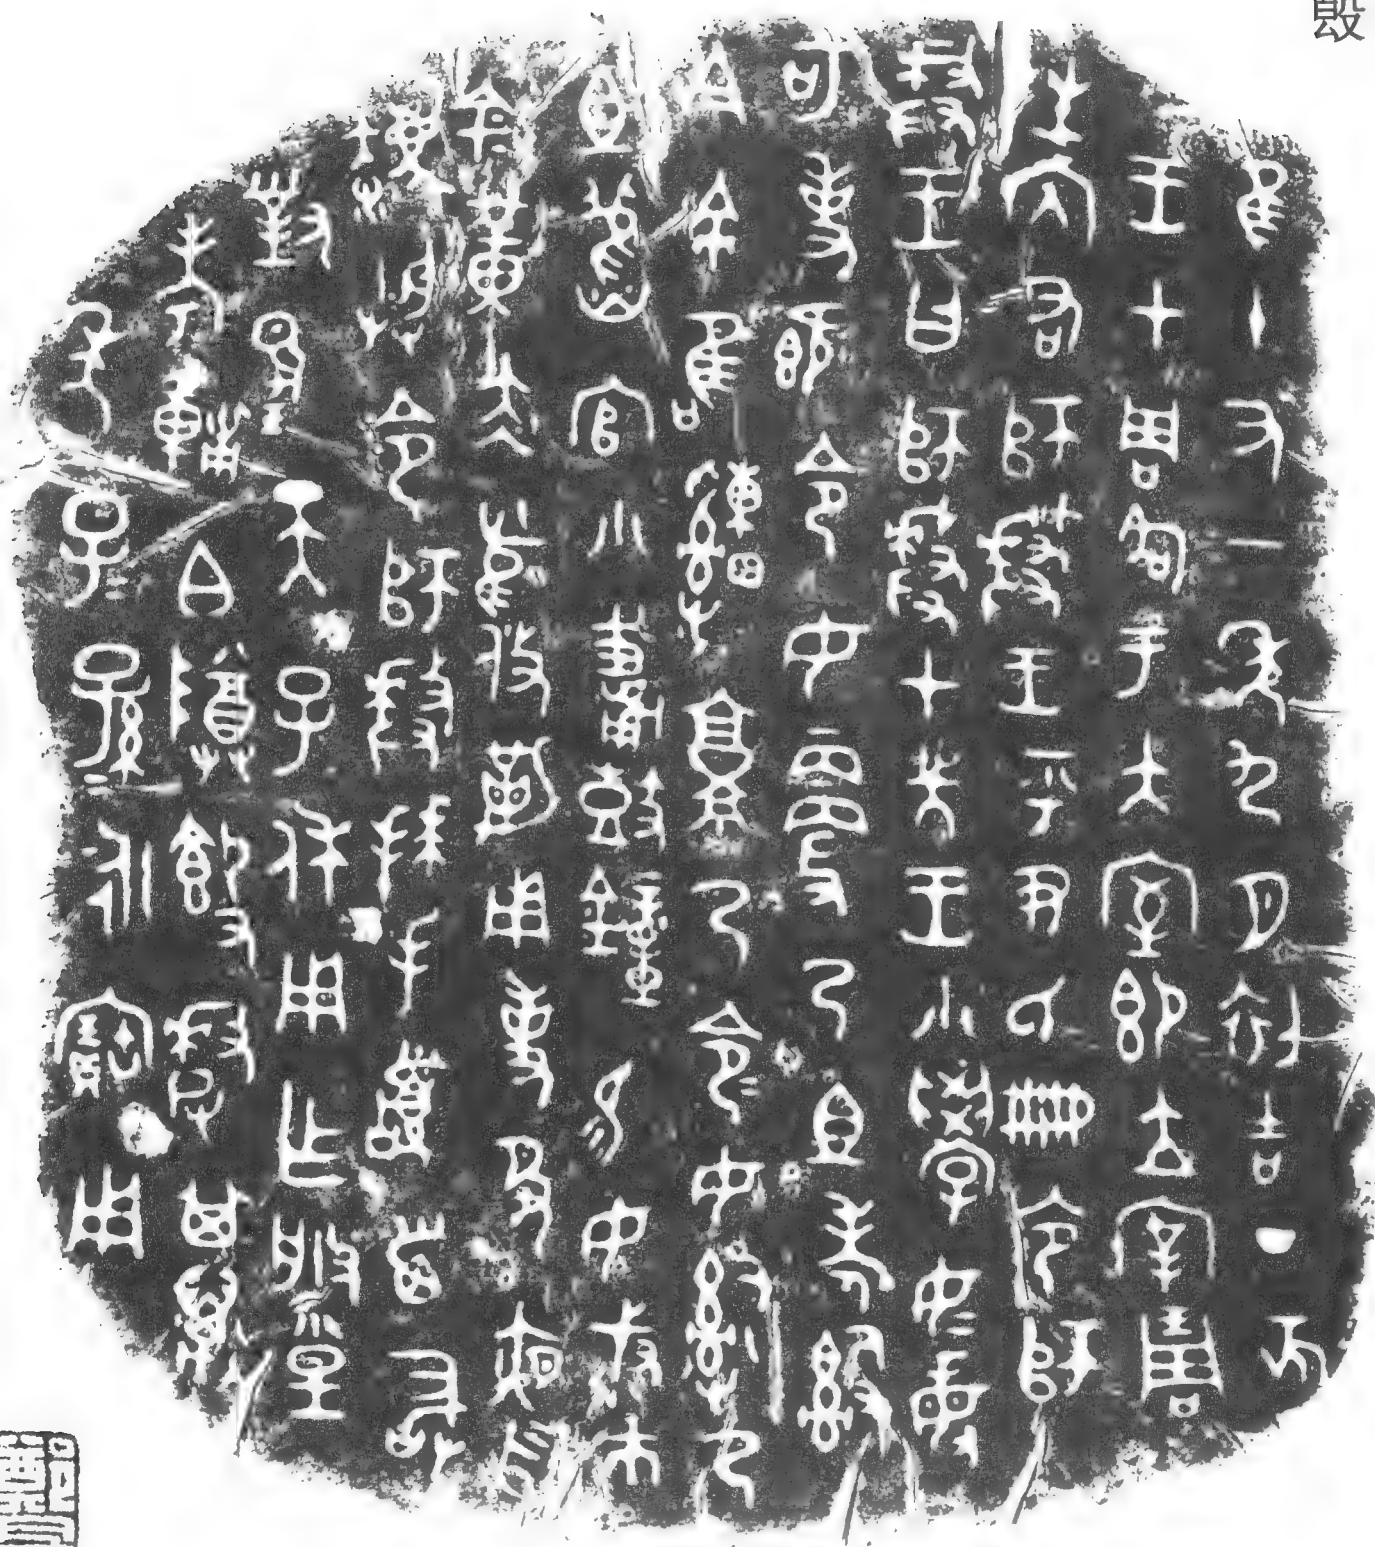 𣪘
隹十又一年九月初吉丁亥
王才周各于大室即立宰琱
生內右師𠭰王乎尹氏冊令師
𠭰王曰師𠭰才先王小學女敏
可事既令女更乃且考𤔲
今余隹𤕌𩫨乃令令女𤔲乃
且舊官小輔鼓鐘易女叔市
金黃赤舄攸勒用事敬夙
夜勿灋朕令師𠭰拜手𩒨首敢
對揚天子休用乍朕皇
考輔白尊𣪘𠭰其萬
年子子孫永寶用